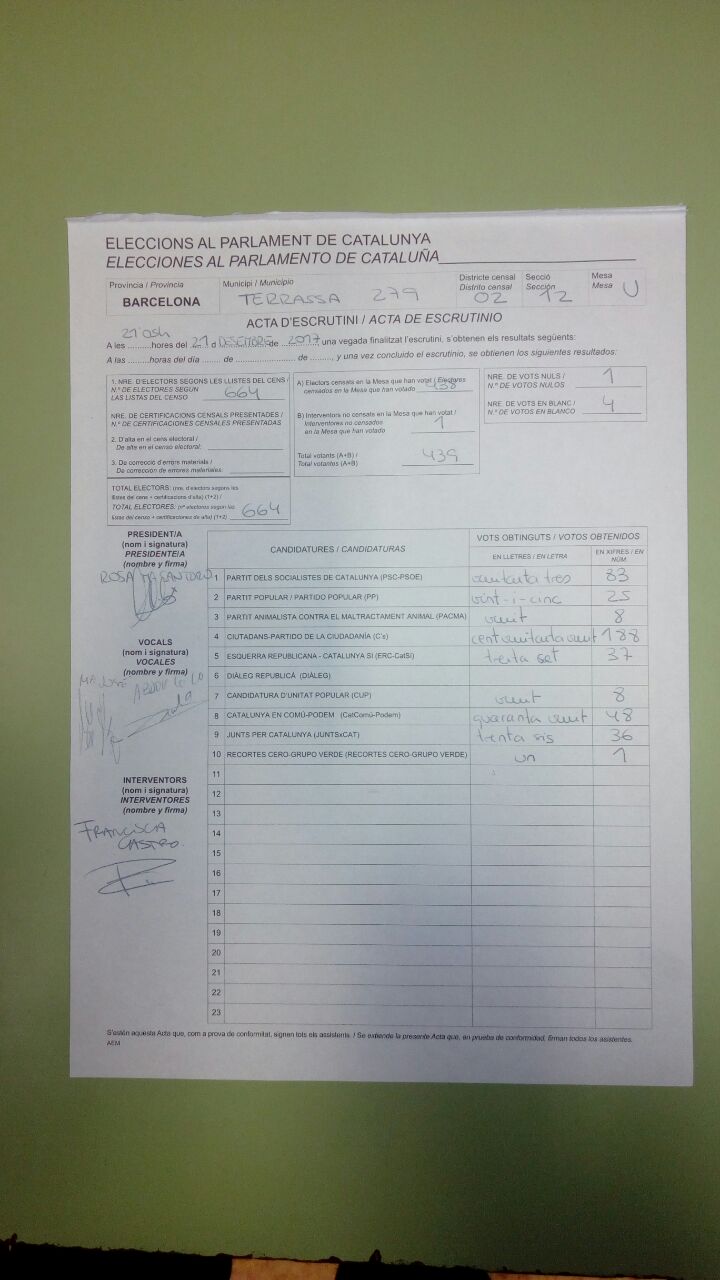 ELECCIONS AL PARLAMENT DE CATALUNYA
ELECCIONES AL PARLAMENTO DE CATALUÑA
Provincia / Provincia
BARCELONA
Municipi / Municipio
TERRASSA 279
Districte censal
Distrito censal
02
Secció
Sección
12
Mesa
Mesa
U
ACTA D'ESCRUTINI / ACTA DE ESCRUTINIO
A les 21'05h hores del 21 d DESEMBRE de 2017 una vegada finalitzat l'escrutini, s'obtenen els resultats següents:
A las ........horas del día ....... de ....................... de ........, y una vez concluido el escrutinio, se obtienen los siguientes resultados:
1. NRE. D'ELECTORS SEGONS LES LLISTES DEL CENS /
N.º DE ELECTORES SEGÚN
LAS LISTAS DEL CENSO
664
NRE. DE CERTIFICACIONS CENSALS PRESENTADES /
N.º DE CERTIFICACIONES CENSALES PRESENTADAS
2. D'alta en el cens electoral /
De alta en el censo electoral:
3. De correcció d'errors materials /
De corrección de errores materiales:
TOTAL ELECTORS: (nre. d'electors segons les
llistes del cens + certificacions d'alta) (1+2) /
TOTAL ELECTORES: (nº electores según las
listas del censo + certificaciones de alta) (1+2)
664
A) Electors censats en la Mesa que han votat / Electores
censados en la Mesa que han votado
438
B) Interventors no censats en la Mesa que han votat /
Interventores no censados
en la Mesa que han votado
1
Total votants (A+B) /
Total votantes (A+B)
439
NRE. DE VOTS NULS /
N.º DE VOTOS NULOS
1
NRE. DE VOTS EN BLANC /
N.º DE VOTOS EN BLANCO
4
PRESIDENT/A
(nom i signatura)
PRESIDENTE/A
(nombre y firma)
VOCALS
(nom i signatura)
VOCALES
(nombre y firma)
INTERVENTORS
(nom i signatura)
INTERVENTORES
(nombre y firma)
FRANCISCA
CASTRO
CANDIDATURES / CANDIDATURAS
VOTS OBTINGUTS / VOTOS OBTENIDOS
EN LLETRES / EN LETRA
EN XIFRES / EN NÚM.
1 PARTIT DELS SOCIALISTES DE CATALUNYA (PSC-PSOE) vuitanta tres 83
2 PARTIT POPULAR / PARTIDO POPULAR (PP) vint-i-cinc 25
3 PARTIT ANIMALISTA CONTRA EL MALTRACTAMENT ANIMAL (PACMA) vuit 8
4 CIUTADANS-PARTIDO DE LA CIUDADANÍA (C's) cent vuitanta vuit 188
5 ESQUERRA REPUBLICANA - CATALUNYA SI (ERC-CatSí) trenta set 37
6 DIÀLEG REPUBLICÀ (DIÀLEG)
7 CANDIDATURA D'UNITAT POPULAR (CUP) vuit 8
8 CATALUNYA EN COMÚ-PODEM (CatComú-Podem) quaranta vuit 48
9 JUNTS PER CATALUNYA (JUNTSxCAT) trenta sis 36
10 RECORTES CERO-GRUPO VERDE (RECORTES CERO-GRUPO VERDE) un 1
11
12
13
14
15
16
17
18
19
20
21
22
23
S'estén aquesta Acta que, com a prova de conformitat, signen tots els assistents. / Se extiende la presente Acta que, en prueba de conformidad, firman todos los asistentes.
AEM